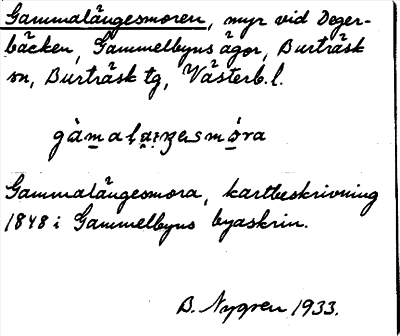 Gammalängesmoren, myr vid Deger-
bäcken, Gammelbyns ägor, Burträsk
sn, Burträsk tg, Västerb.l.
Gammalängesmora, kartbeskrivning
1848 i Gammelbyns byaskrin.
B. Nygren 1933.